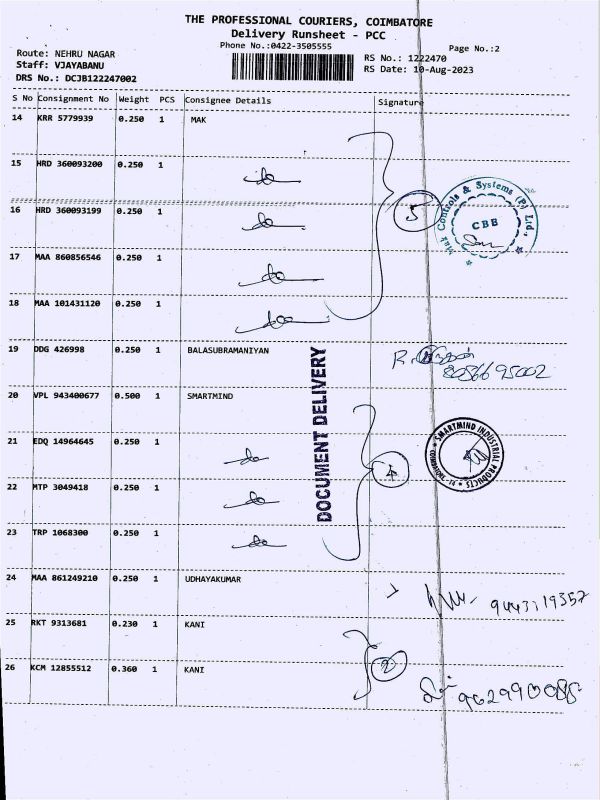 THE PROFESSIONAL COURIERS, COIMBATORE
Delivery Runsheet - PCC
Phone No.:0422-3505555
Page No.:2
Route: NEHRU NAGAR
RS No.: 1222470
Staff: VJAYABANU
RS Date: 10-Aug-2023
DRS No.: DCJB122247002
S No Consignment No Weight PCS Consignee Details Signature
14 KRR 5779939 0.250 1 MAK
15 HRD 360093200 0.250 1 do
16 HRD 360093199 0.250 1 do
5
Mak Controls & Systems (P) Ltd.,
CBE
17 MAA 860856546 0.250 1 do
18 MAA 101431120 0.250 1 do
19 DDG 426998 0.250 1 BALASUBRAMANIYAN
DOCUMENT DELIVERY
20 VPL 943400677 0.500 1 SMARTMIND
21 EDQ 14964645 0.250 1 do
4
SMARTMIND INDUSTRIAL PRODUCTS
COIMBATORE - 14
22 MTP 3049418 0.250 1 do
23 TRP 1068300 0.250 1 do
24 MAA 861249210 0.250 1 UDHAYAKUMAR
9443119357
25 RKT 9313681 0.230 1 KANI
2
26 KCM 12855512 0.360 1 KANI